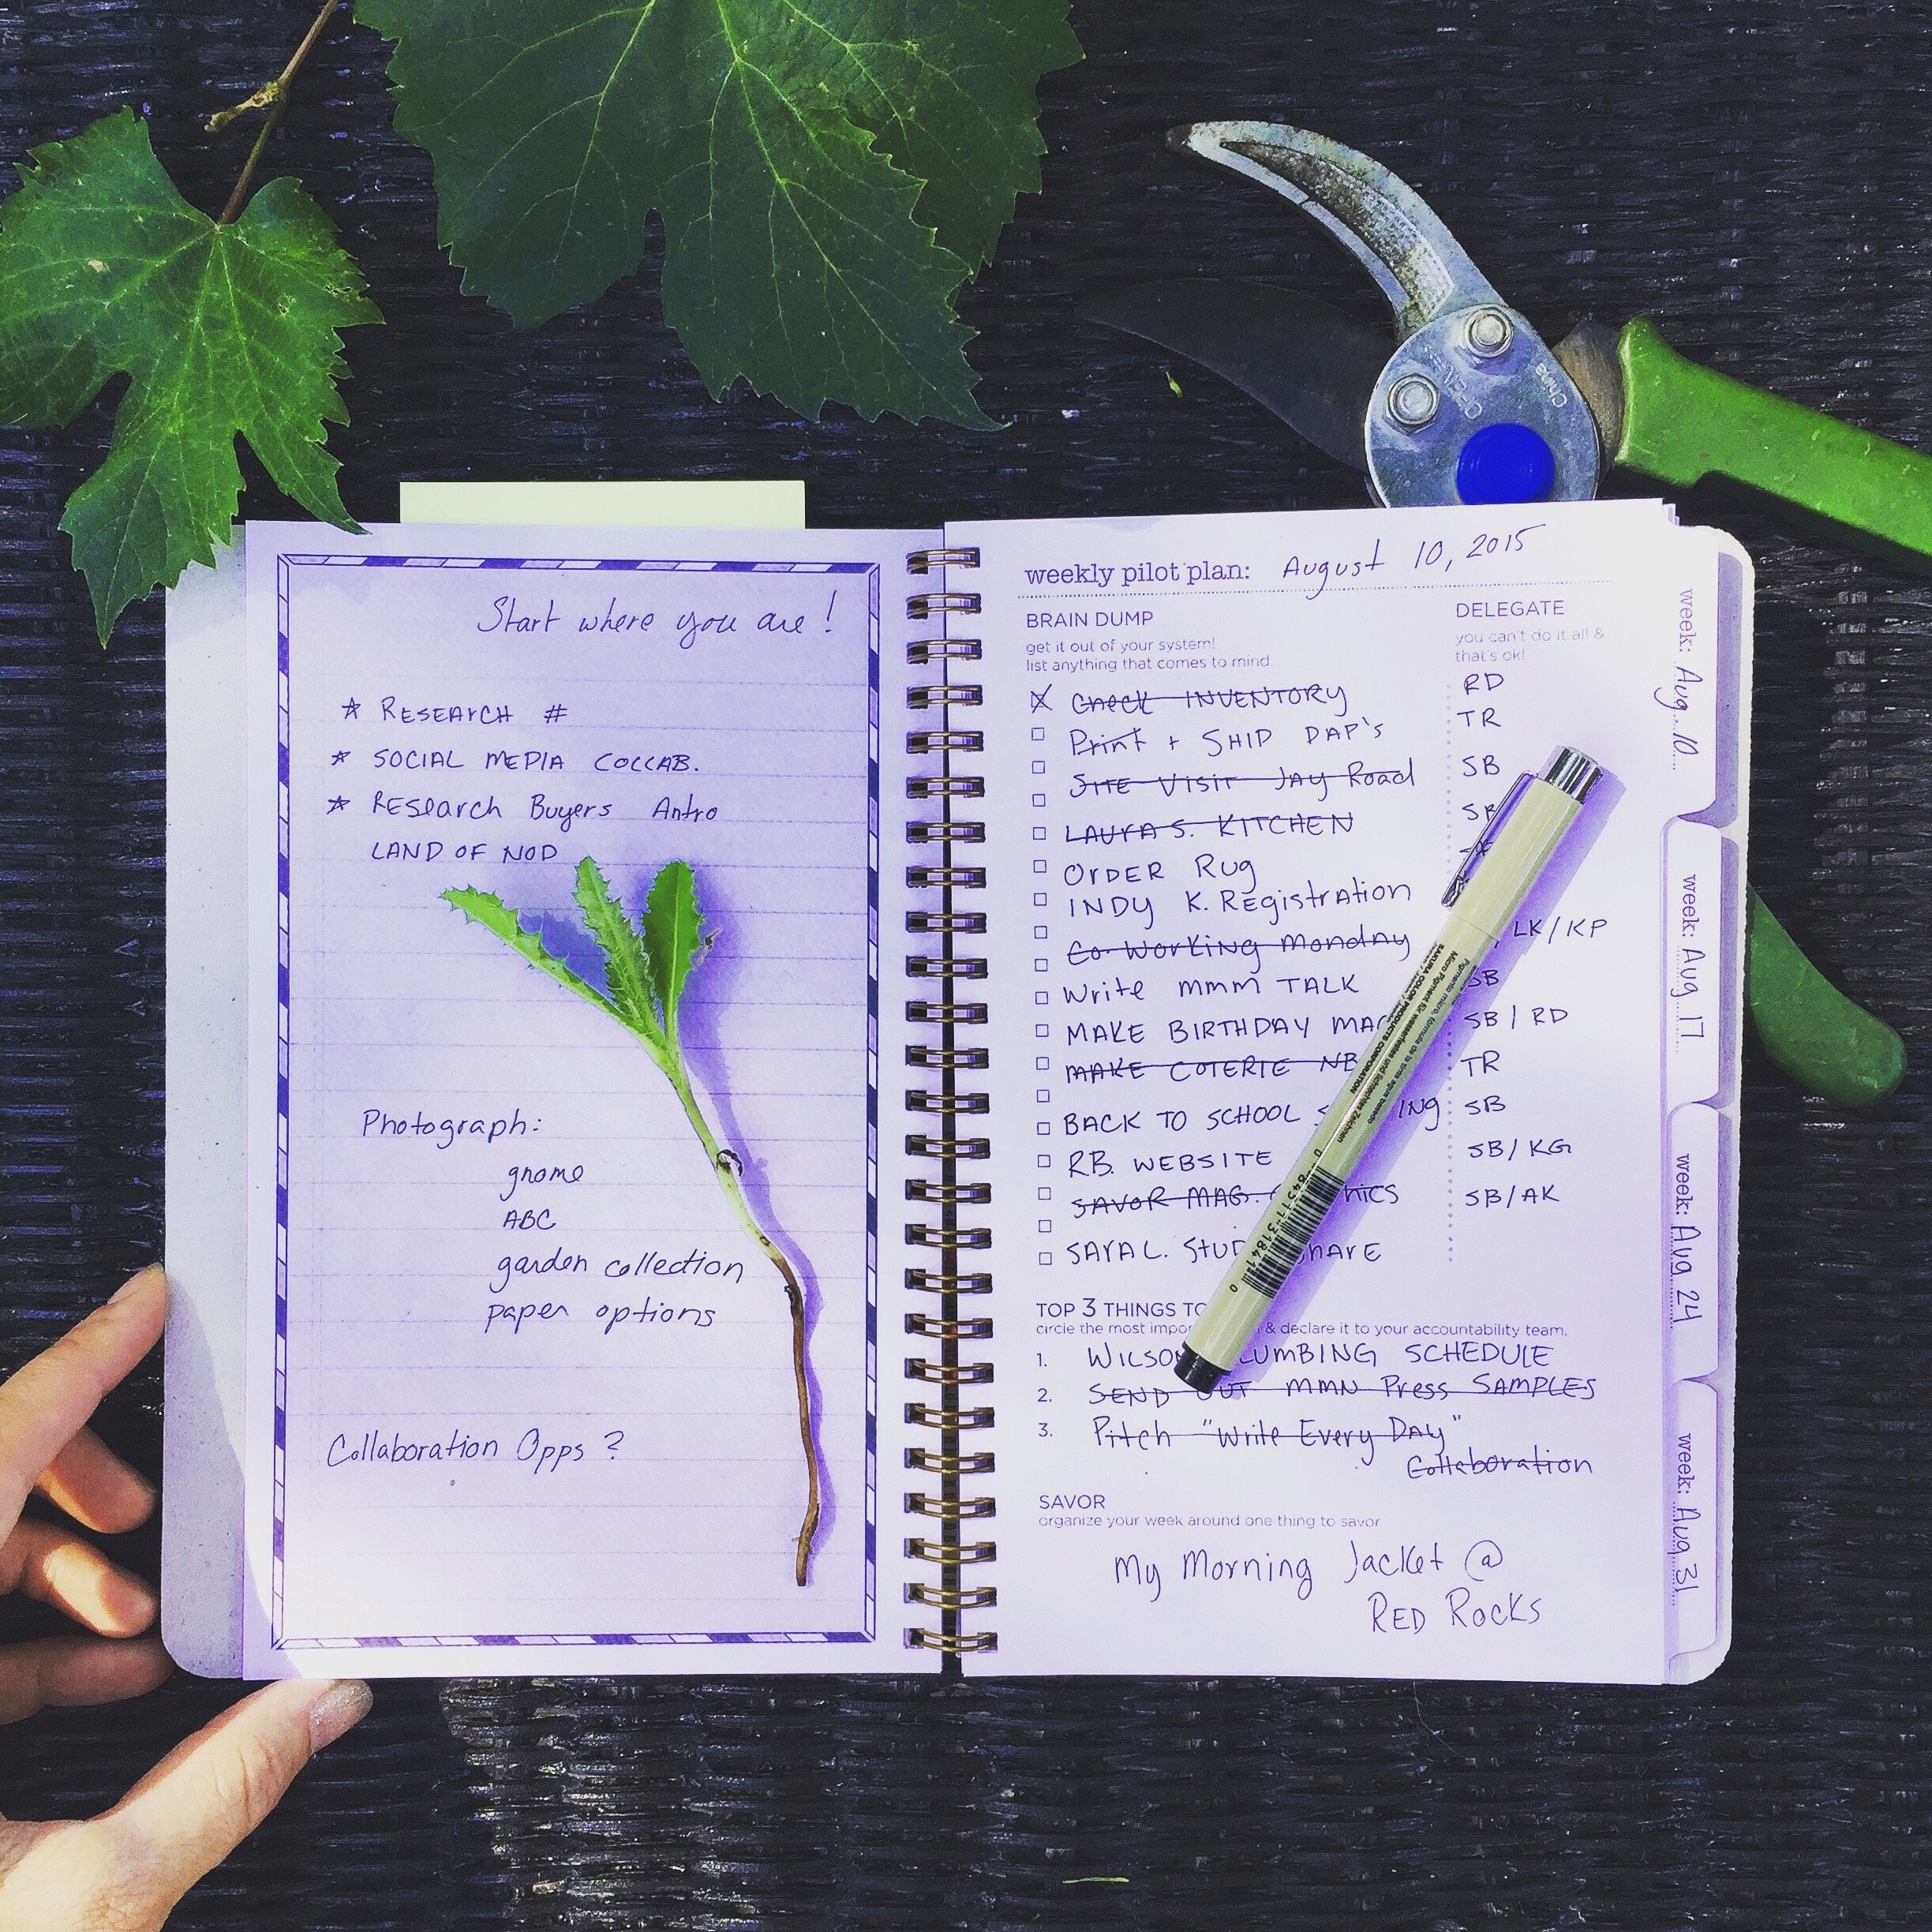 Start where you are!
* RESEARCH #
* SOCIAL MEDIA COLLAB.
* RESEArch Buyers Antro
LAND OF NOD
Photograph:
gnome
ABC
garden collection
paper options
Collaboration Opps?
weekly pilot plan: August 10, 2015
BRAIN DUMP
get it out of your system!
list anything that comes to mind.
DELEGATE
you can't do it all &
that's ok!
Check INVENTORY RD
Print + SHIP DAP'S TR
SITE VISIT JAY Road SB
LAURA S. KITCHEN
ORDER Rug
INDY K. REgistrAtion
Co-Working Monday LK/KP
Write mmm TALK SB
MAKE BIRTHDAY SB/RD
MAKE COTERIE NB TR
BACK TO SCHOOL SB
RB. WEBSITE SB/KG
SAVOR MAG. SB/AK
SARA L. ShArE
TOP 3 THINGS TO
circle the most & declare it to your accountability team.
1. SCHEDULE
2. SEND OUT MMN Press SAMPLES
3. Pitch "Write Every Day"
Collaboration
SAVOR
organize your week around one thing to savor.
My Morning Jacket @
RED ROCKS
week: Aug. 10
week: Aug 17
week: Aug 24
week: Aug 31
SAKURA COLOR PRODUCTS CORPORATION
China